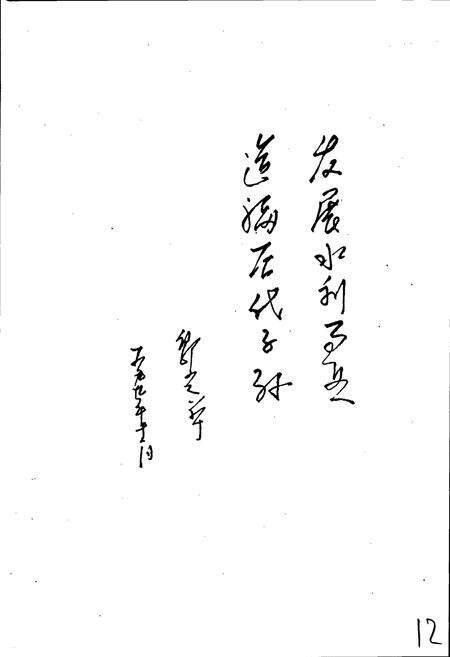 发展水利事业
造福后代子孙
一九九〇年十一月
12